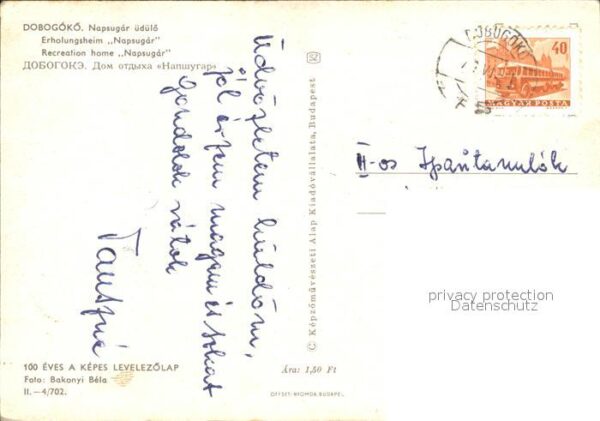 DOBOGÓKŐ. Napsugár üdülő
Erholungsheim „Napsugár"
Recreation home „Napsugár"
ДОБОГОКЭ. Дом отдыха «Напшугар»
Üdvözletem küldöm,
jól érzem magam és sokat
gondolok rátok
100 ÉVES A KÉPES LEVELEZŐLAP
Foto: Bakonyi Béla
II.—4/702.
© Képzőművészeti Alap Kiadóvállalata, Budapest
Ára: 1,50 Ft
OFFSET-NYOMDA BUDAPEST
DOBOGÓKŐ
40
MAGYAR POSTA
II-os Ipari tanulók
privacy protection
Datenschutz